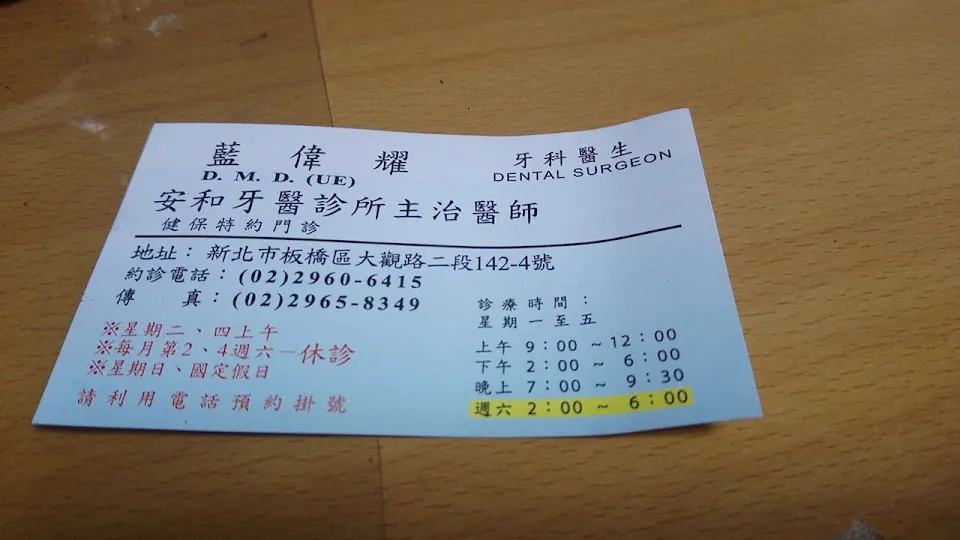 藍偉耀
牙科醫生
D. M. D. (UE)
DENTAL SURGEON
安和牙醫診所主治醫師
健保特約門診
地址：新北市板橋區大觀路二段142-4號
約診電話：(02)2960-6415
傳真：(02)2965-8349
※星期二、四上午
※每月第2、4週六－休診
※星期日、國定假日
請利用電話預約掛號
診療時間：
星期一至五
上午 9：00 ~ 12：00
下午 2：00 ~ 6：00
晚上 7：00 ~ 9：30
週六 2：00 ~ 6：00